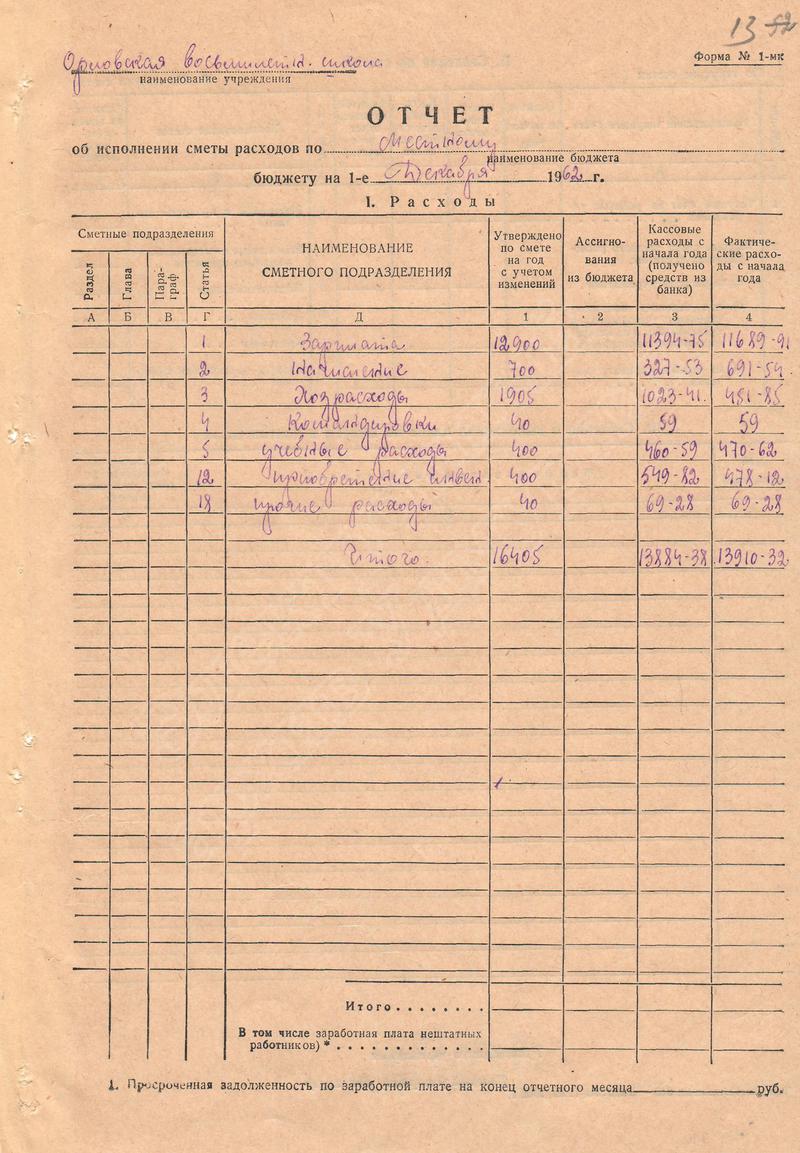 13 52
Орловская восьмилетн. школа
Форма № 1-мк
наименование учреждения
ОТЧЕТ
об исполнении сметы расходов по местному
наименование бюджета
бюджету на 1-е Декабря 1962 г.
I. Расходы
Сметные подразделения
Раздел
Глава
Пара-
граф
Статья
НАИМЕНОВАНИЕ
СМЕТНОГО ПОДРАЗДЕЛЕНИЯ
Утверждено
по смете
на год
с учетом
изменений
Ассигно-
вания
из бюджета
Кассовые
расходы с
начала года
(получено
средств из
банка)
Фактиче-
ские расхо-
ды с начала
года
А Б В Г Д 1 2 3 4
1 Зарплата 12900 11394-75 11689-91
2 Начисление 700 327-53 691-54
3 Хозрасходы 1905 1023-41 451-85
4 Командировки 40 59 59
5 учебные расходы 400 460-59 470-62
12 приобретение инвен. 400 549-82 478-12
18 прочие расходы 40 69-28 69-28
Итого. 16405 13884-38 13910-32
Итого . . . . . . . .
В том числе заработная плата нештатных
работников) * . . . . . . . . . . . . .
1. Просроченная задолженность по заработной плате на конец отчетного месяца руб.